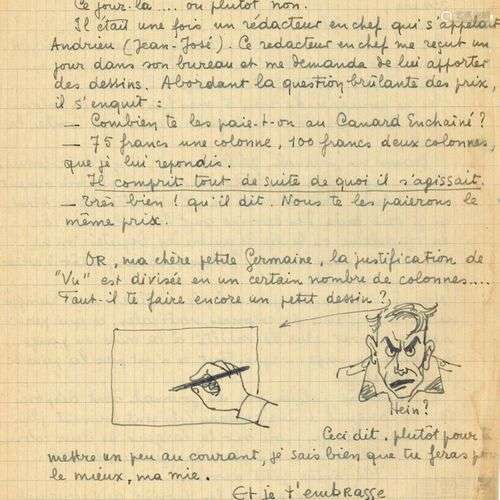 Ce jour-là.... ou plutôt non.
Il était une fois un rédacteur en chef qui s'appelait
Andrieu (Jean-José). Ce redacteur en chef me reçut un
jour dans son bureau et me demanda de lui apporter
des dessins. Abordant la question brûlante des prix,
il s'enquit :
— Combien te les paie-t-on au Canard Enchaîné ?
— 75 francs une colonne, 100 francs deux colonnes,
que je lui repondis.
Il comprit tout de suite de quoi il s'agissait.
— Très bien ! qu'il dit. Nous te les paierons le
même prix.
OR, ma chère petite Germaine, la justification de
"Vu" est divisée en un certain nombre de colonnes....
Faut-il te faire encore un petit dessin ?
Hein ?
Ceci dit, plutôt pour te
mettre un peu au courant, je sais bien que tu feras pour
le mieux, ma mie.
Et je t'embrasse